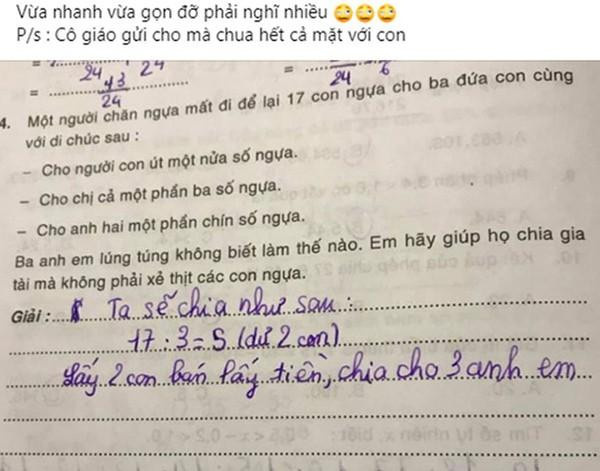 Vừa nhanh vừa gọn đỡ phải nghĩ nhiều
P/s : Cô giáo gửi cho mà chua hết cả mặt với con
24 24
= 43
24
= 24 6
4. Một người chăn ngựa mất đi để lại 17 con ngựa cho ba đứa con cùng
với di chúc sau :
– Cho người con út một nửa số ngựa.
– Cho chị cả một phần ba số ngựa.
– Cho anh hai một phần chín số ngựa.
Ba anh em lúng túng không biết làm thế nào. Em hãy giúp họ chia gia
tài mà không phải xẻ thịt các con ngựa.
Giải : Ta sẽ chia như sau :
17 : 3 = 5 (dư 2 con)
Lấy 2 con bán lấy tiền, chia cho 3 anh em